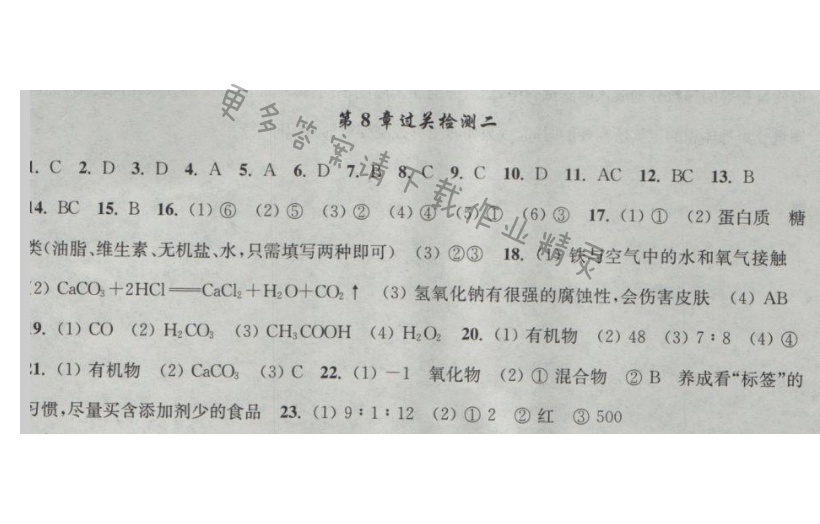 第8章过关检测二
1. C 2. D 3. D 4. A 5. A 6. D 7. B 8. C 9. C 10. D 11. AC 12. BC 13. B
14. BC 15. B 16. (1)⑥ (2)⑤ (3)② (4)④ (5)① (6)③ 17. (1)① (2)蛋白质 糖
类(油脂、维生素、无机盐、水,只需填写两种即可) (3)②③ 18. (1)铁与空气中的水和氧气接触
(2) CaCO₃+2HCl══CaCl₂+H₂O+CO₂↑ (3)氢氧化钠有很强的腐蚀性,会伤害皮肤 (4) AB
19. (1) CO (2) H₂CO₃ (3) CH₃COOH (4) H₂O₂ 20. (1)有机物 (2) 48 (3) 7∶8 (4)④
21. (1)有机物 (2) CaCO₃ (3) C 22. (1) −1 氧化物 (2)①混合物 ② B 养成看“标签”的
习惯,尽量买含添加剂少的食品 23. (1) 9∶1∶12 (2)① 2 ②红 ③ 500
更多答案请下载作业精灵